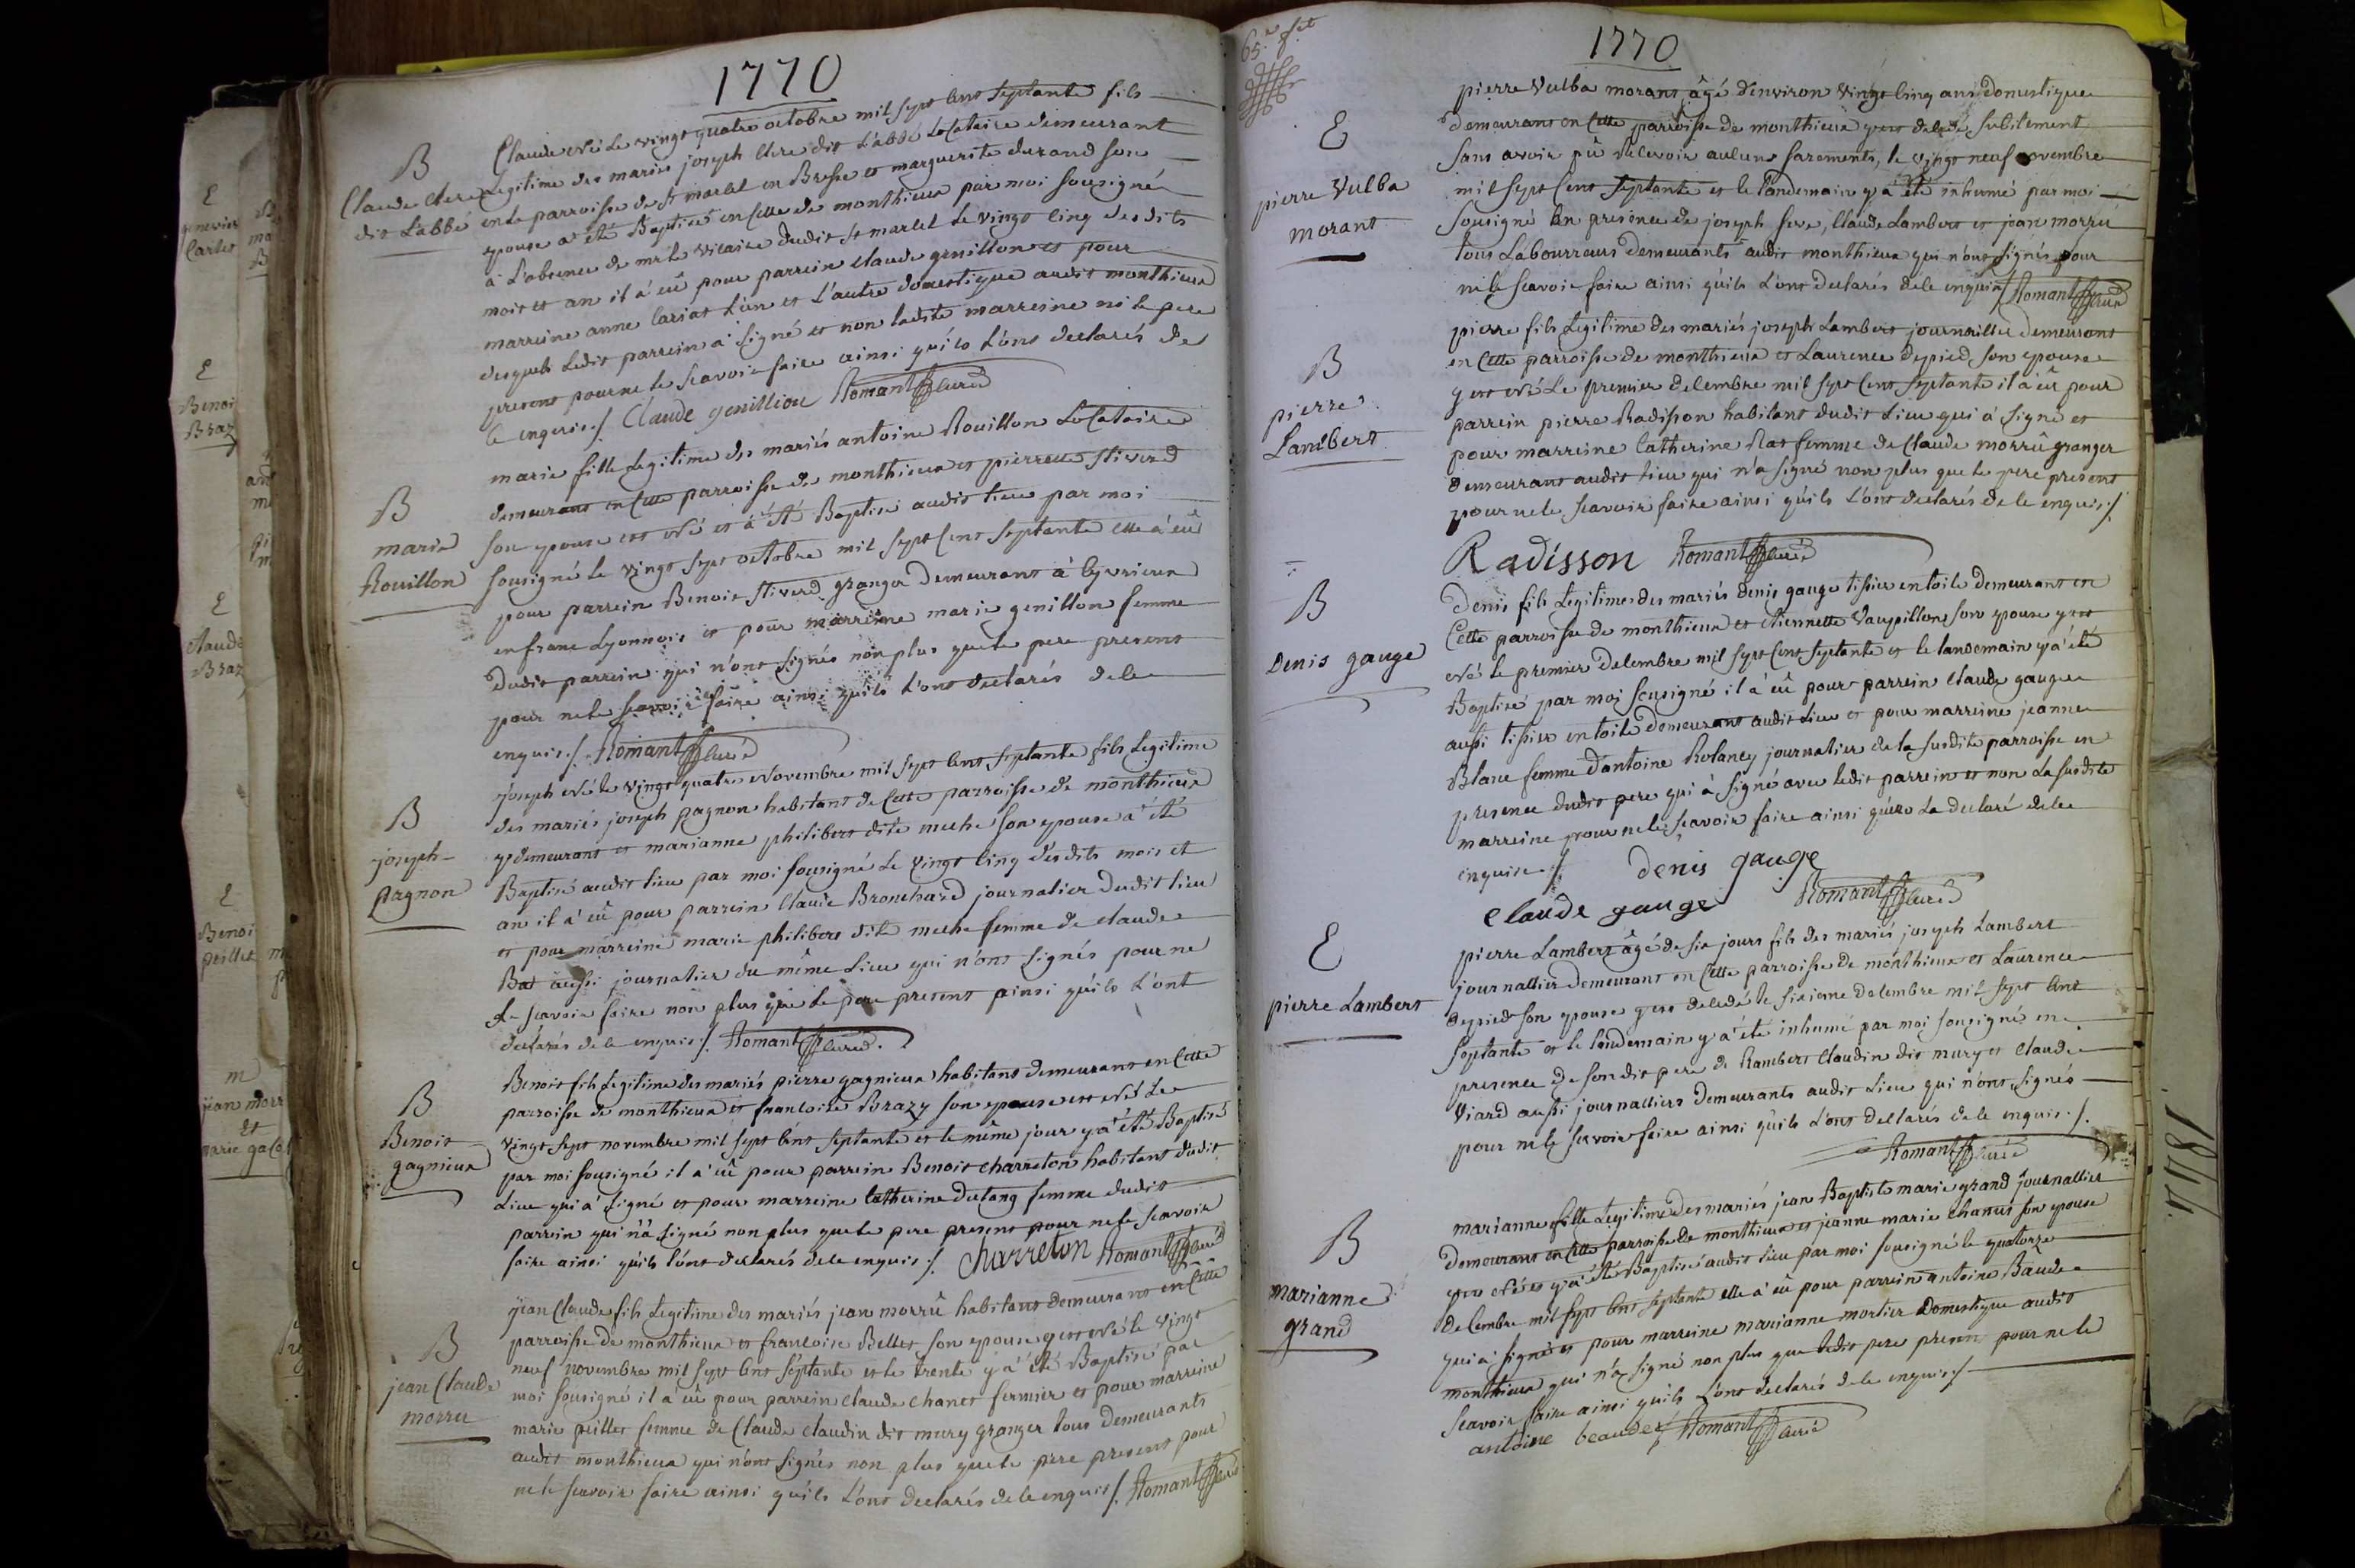 1770
B
Claude Clere
dit L'abbé
Claude né Le vingt quatre octobre mil sept cent septante fils
Legitime des mariés joseph Clere dit L'abbé Locataire demeurant
en le parroisse de St marcel en Bresse et marguerite durand son
epouse a été Baptisé en celle de monthieux par moi sousigné
à L'absence de mr le vicaire dudit St marcel Le vingt cinq desdits
mois et an il a eû pour parrein claude genillon et pour
marreine anne Cariat L'un et L'autre domestique audit monthieux
desquels Ledit parrein a signé et non ladite marreine ni le pere
present pour ne le scavoir faire ainsi qu'ils L'ont declarés de
le enquis ./. Claude genillion Romant curé
B
marie
Rouillon
marie fille Legitime des mariés antoine Rouillon Locataire
demeurant en cette parroisse de monthieux et pierrette stiverd
son epouse est né et a été Baptisé audit lieu par moi
sousigné le vingt sept octobre mil sept cent septante elle a eû
pour parrein Benoit stiverd granger demeurant à Civrieux
en franc Lyonnois et pour marreine marie genillon femme
dudit parrein qui n'ont signés non plus que le pere present
pour ne le scavoir faire ainsi qu'ils L'ont declarés de le
enquis ./. Romant curé
B
joseph
pagnon
joseph né le vingt quatre novembre mil sept cent septante fils Legitime
des mariés joseph pagnon habitant de cette parroisse de monthieux
y demeurant et marianne philibert dite meche son epouse a été
Baptisé audit lieu par moi sousigné Le vingt cinq desdits mois et
an il a eû pour parrein Claude Bronchard journalier dudit lieu
et pour marreine marie philibert dite meche femme de claude
Bat aussi journalier du même Lieu qui n'ont signés pour ne
Le scavoir faire non plus que Le pere present ainsi qu'ils L'ont
declarés de le enquis ./. Romant curé.
B
Benoit
gagnieux
Benoit fils Legitime des mariés pierre gagnieux habitant demeurant en cette
parroisse de monthieux et francoise Brazy son epouse est né Le
vingt sept novembre mil sept cent septante et le même jour y a été Baptisé
par moi sousigné il a eû pour parrein Benoit charreton habitant dudit
Lieu qui a signé et pour marreine catherine dutang femme dudit
parrein qui n'a signé non plus que le pere present pour ne le scavoir
faire ainsi qu'ils l'ont declarés de le enquis ./. Charreton Romant curé
B
jean Claude
morru
jean Claude fils Legitime des mariés jean morrû habitant demeurant en cette
parroisse de monthieux et francoise Bellet son epouse y est né le vingt
neuf novembre mil sept cent septante et le trente y a été Baptisé par
moi sousigné il a eû pour parrein claude chanet fermier et pour marreine
marie peillet femme de Claude claudin dit mury granger tous demeurants
audit monthieux qui n'ont signés non plus que le pere present pour
ne le scavoir faire ainsi qu'ils L'ont declarés de le enquis ./. Romant curé
1770
E
pierre Vulba
morant
pierre Vulba morant âgé d'environ vingt cinq ans domestique
demeurant en cette parroisse de monthieux y est decedé subitement
sans avoir pû recevoir aucuns sacrements, le vingt neuf novembre
mil sept cent septante et le landemain y a été inhumé par moi
sousigné en presence de joseph seve, Claude Lambert et jean morru
tous Labourreurs demeurants audit monthieux qui n'ont signés pour
ne le scavoir faire ainsi qu'ils L'ont declarés de le enquis ./. Romant curé
B
pierre
Lambert
pierre fils Legitime des mariés joseph Lambert journallier demeurant
en cette parroisse de monthieux et Laurence depied son epouse
y est né Le premier decembre mil sept cent septante il a eû pour
parrein pierre Radisson habitant dudit Lieu qui a signé et
pour marreine Catherine Rat femme de Claude morrû granger
demeurant audit lieu qui n'a signé non plus que le pere present
pour ne le scavoir faire ainsi qu'ils L'ont declarés de le enquis ./.
Radisson Romant curé
B
Denis gauge
Denis fils Legitime des mariés denis gauge tissier en toile demeurant en
Cette parroisse de monthieux et etiennette Vaupillon son epouse y est
né le premier decembre mil sept cent septante et le landemain y a été
Baptisé par moi sousigné il a eû pour parrein claude gauge
aussi tissier en toile demeurant audit Lieu et pour marreine jeanne
Blanc femme d'antoine Rolancy journalier de la susdite parroisse en
presence dudit pere qui a signé avec ledit parrein et non La susdite
marreine pour ne le scavoir faire ainsi qu'elle La declaré de le
enquise ./. denis gauge
Claude gauge Romant curé
E
pierre Lambert
pierre Lambert âgé de six jours fils des mariés joseph Lambert
journallier demeurant en cette parroisse de monthieux et Laurence
depied son epouse y est decedé le sixieme decembre mil sept cent
septante et le landemain y a été inhumé par moi sousigné en
presence de son dit pere de Rambert Claudin dit mury et Claude
Viard aussi journalliers demeurants audit Lieu qui n'ont signés
pour ne le scavoir faire ainsi qu'ils L'ont declarés de le enquis ./.
Romant curé
B
marianne
grand
marianne fille Legitime des mariés jean Baptiste marie grand journallier
demeurant en cette parroisse de monthieux et jeanne marie chanut son epouse
y est née et y a été Baptisé audit lieu par moi sousigné le quatorze
decembre mil sept cent septante elle a eû pour parrein antoine Baude
qui a signé et pour marreine marianne mortier domestique audit
monthieux qui n'a signé non plus que ledit pere present pour ne le
scavoir faire ainsi qu'ils L'ont declarés de le enquis ./.
antoine beaude Romant curé